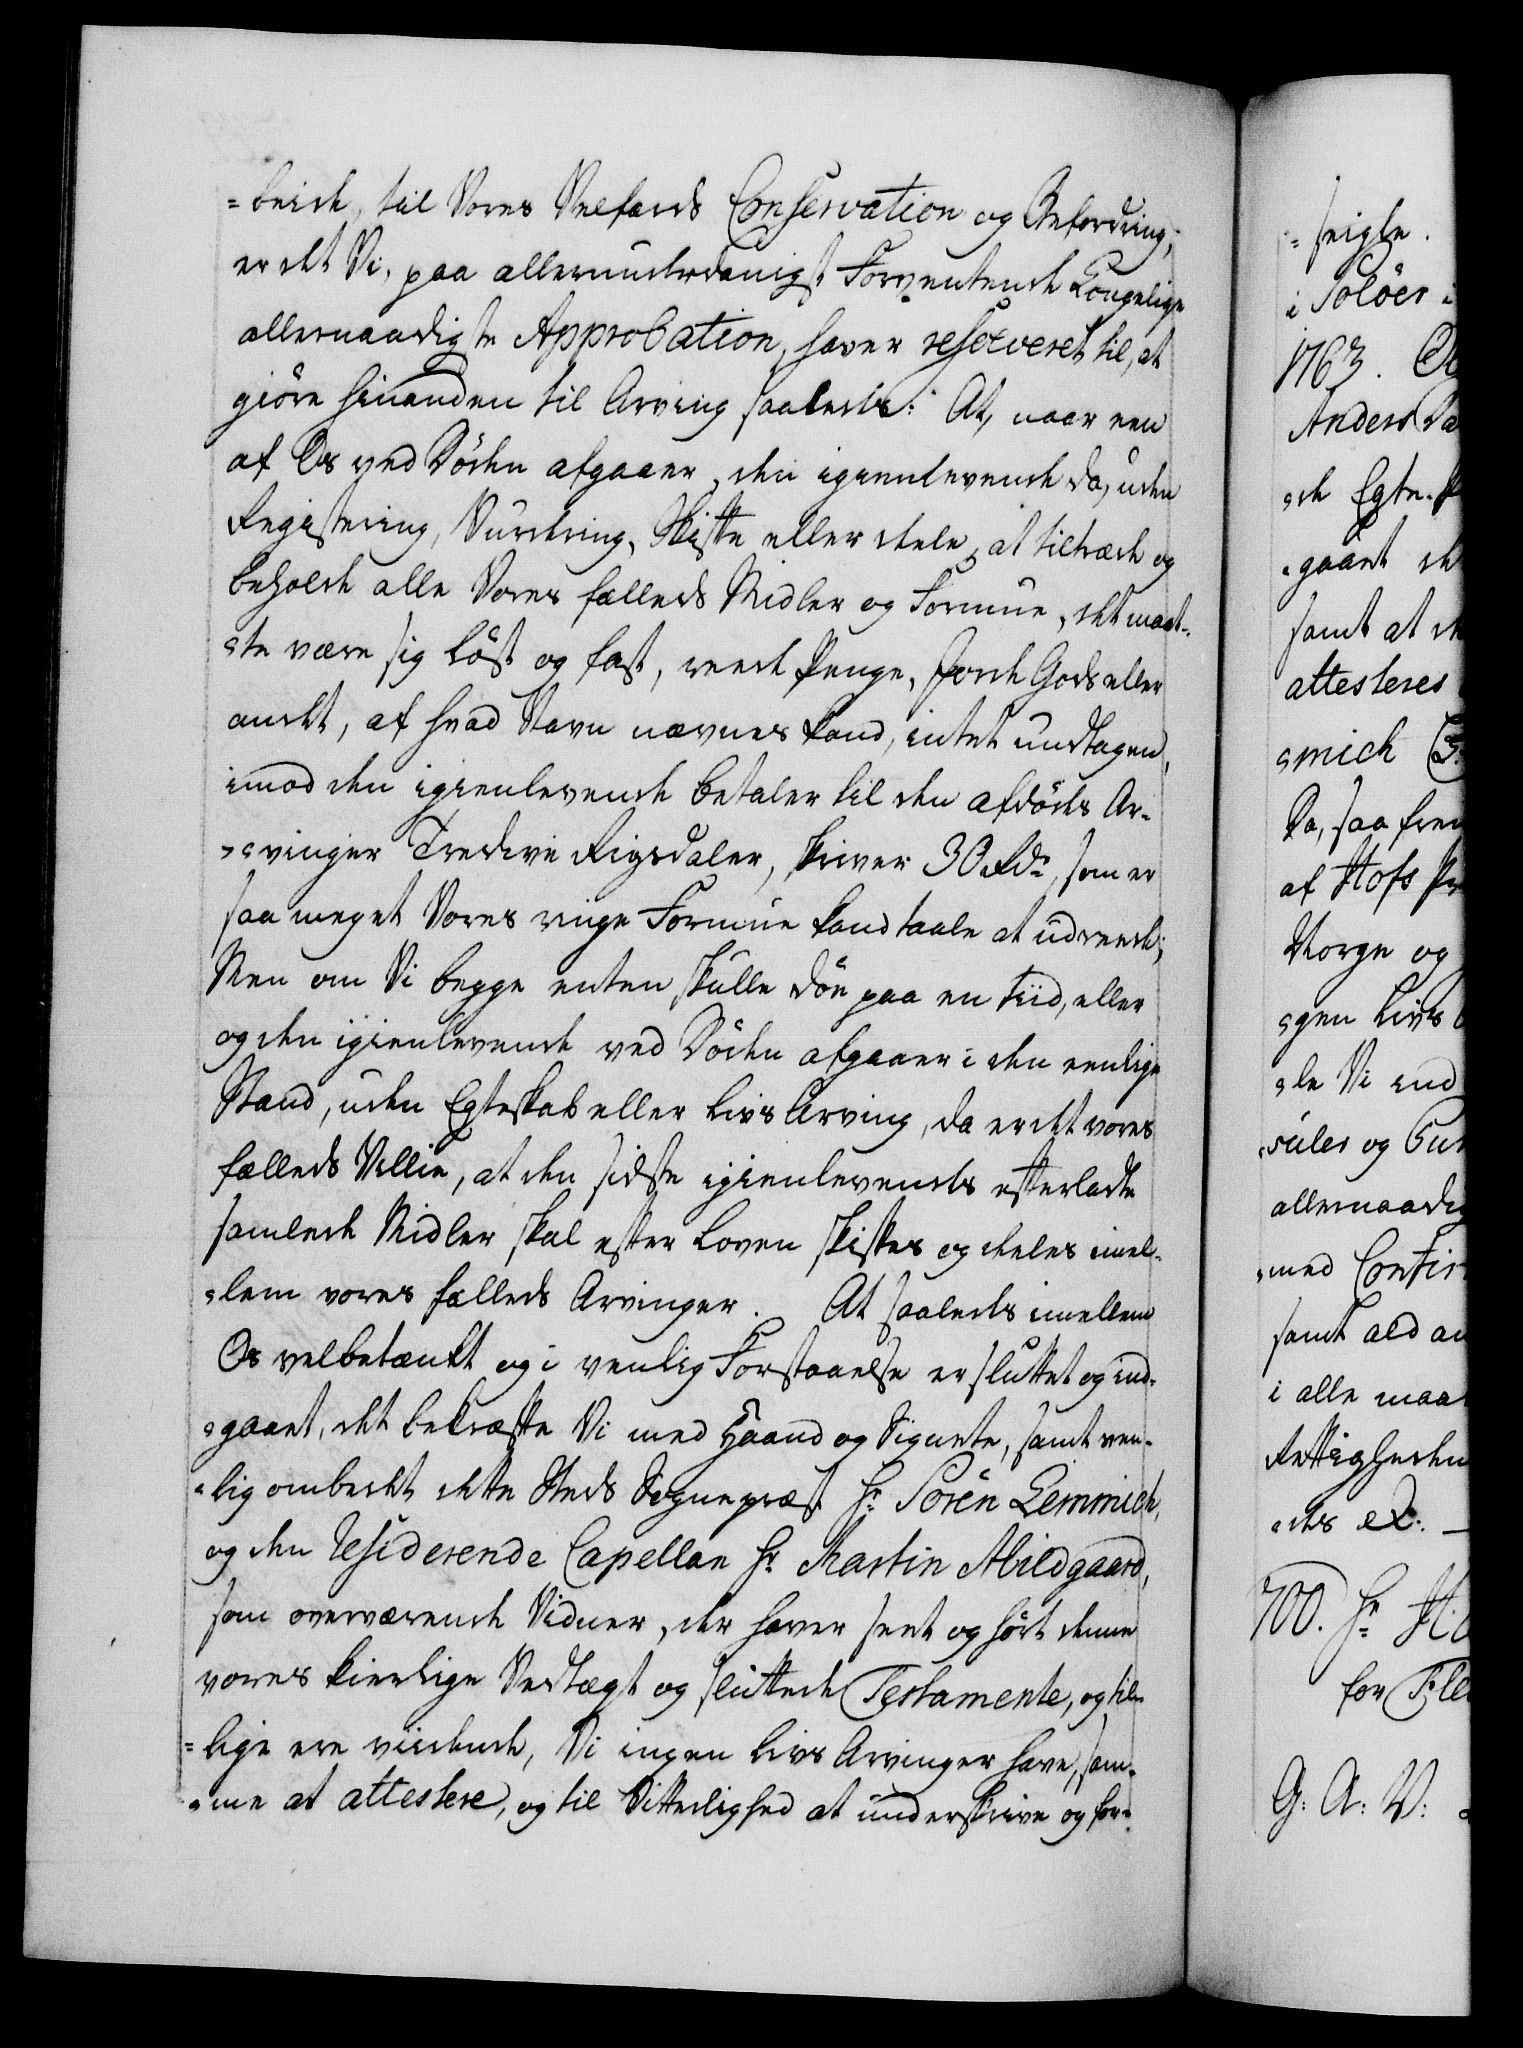 =beide, til Vores Velfærds Conservation og Befordring,
er det Vi, paa allerunderdanigst Forventende Kongelige
allernaadigste Approbation, haver resolveret til, at
giöre hinanden til Arving saaledes: At, naar een
af Os ved Döden afgaaer, den igienlevende da, uden
Registering, Vurdering, Skifte eller Dele, at tiltræde og
beholde alle Vores fælleds Midler og Formue, det maat-
=te være sig löst og fast, reede Penge, Jorde Gods eller
andet, af hvad Navn nævnes kand, intet undtagen,
imod den igienlevende betaler til den afdödes Ar-
=vinger Tredive Rigsdaler, skriver 30 Rdr, som er
saa meget Vores ringe Formue kand taale at udreede;
Men om Vi begge enten skulle döe paa en tiid, eller
og den igienlevende ved Döden afgaaer i den eenlige
Stand, uden Egteskab eller Livs Arving, da er det vores
fælleds Villie, at den sidste igienlevendes efterladte
samlede Midler skal efter Loven skiftes og deles imel-
=lem vores fælleds Arvinger. At saaledes imellem
Os velbetænkt og i venlig Forstaaelse er sluttet og ind-
=gaaet, det bekræfte Vi med Haand og Signete, samt ven-
=lig ombedet dette Steds Sognepræst Hr Sören Lemmich,
og den Residerende Capellan Hr Martin Abildgaard,
som overværende Vidner, der haver seet og hört denne
vores kierlige Vedtægt og sluttede Testamente, og til-
=lige ere viidende, Vi ingen Livs Arvinger have, sam-
=me at attestere, og til Vitterlighed at underskrive og for-
=seigle.
i Solöer i
1763.
Anders Da
=de Egte-P
=gaaet de
samt at de
attesteres
=mich
Da, saa frem
af Hofs Pr
Norge og
=gen Livs
=le Vi end
=suler og Gun
allernaadig
=med Confir
samt ald an
i alle maa
Rettigheden
=des &c. —
700. Hr H
for Fle
G: A: V: